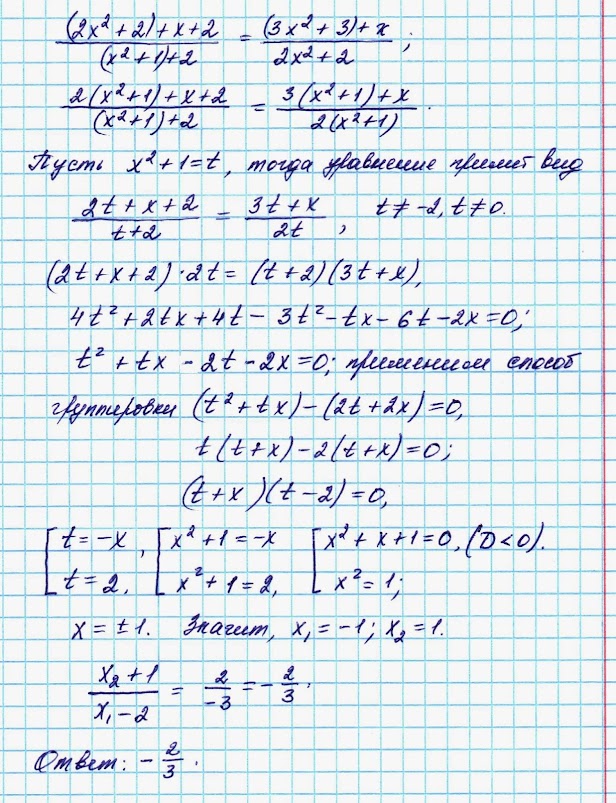 (2x²+2)+x+2 / (x²+1)+2 = (3x²+3)+x / 2x²+2 ;
2(x²+1)+x+2 / (x²+1)+2 = 3(x²+1)+x / 2(x²+1) .
Пусть x²+1=t, тогда уравнение примет вид
2t+x+2 / t+2 = 3t+x / 2t , t≠-2, t≠0.
(2t+x+2)·2t = (t+2)(3t+x),
4t²+2tx+4t-3t²-tx-6t-2x=0;
t²+tx-2t-2x=0; применим способ
группировки (t²+tx)-(2t+2x)=0,
t(t+x)-2(t+x)=0;
(t+x)(t-2)=0,
[ t=-x , [ x²+1=-x [ x²+x+1=0, (D<0).
t=2, x²+1=2, x²=1;
x=±1. Значит, x₁=-1; x₂=1.
x₂+1 / x₁-2 = 2 / -3 = - 2/3 .
Ответ: - 2/3 .